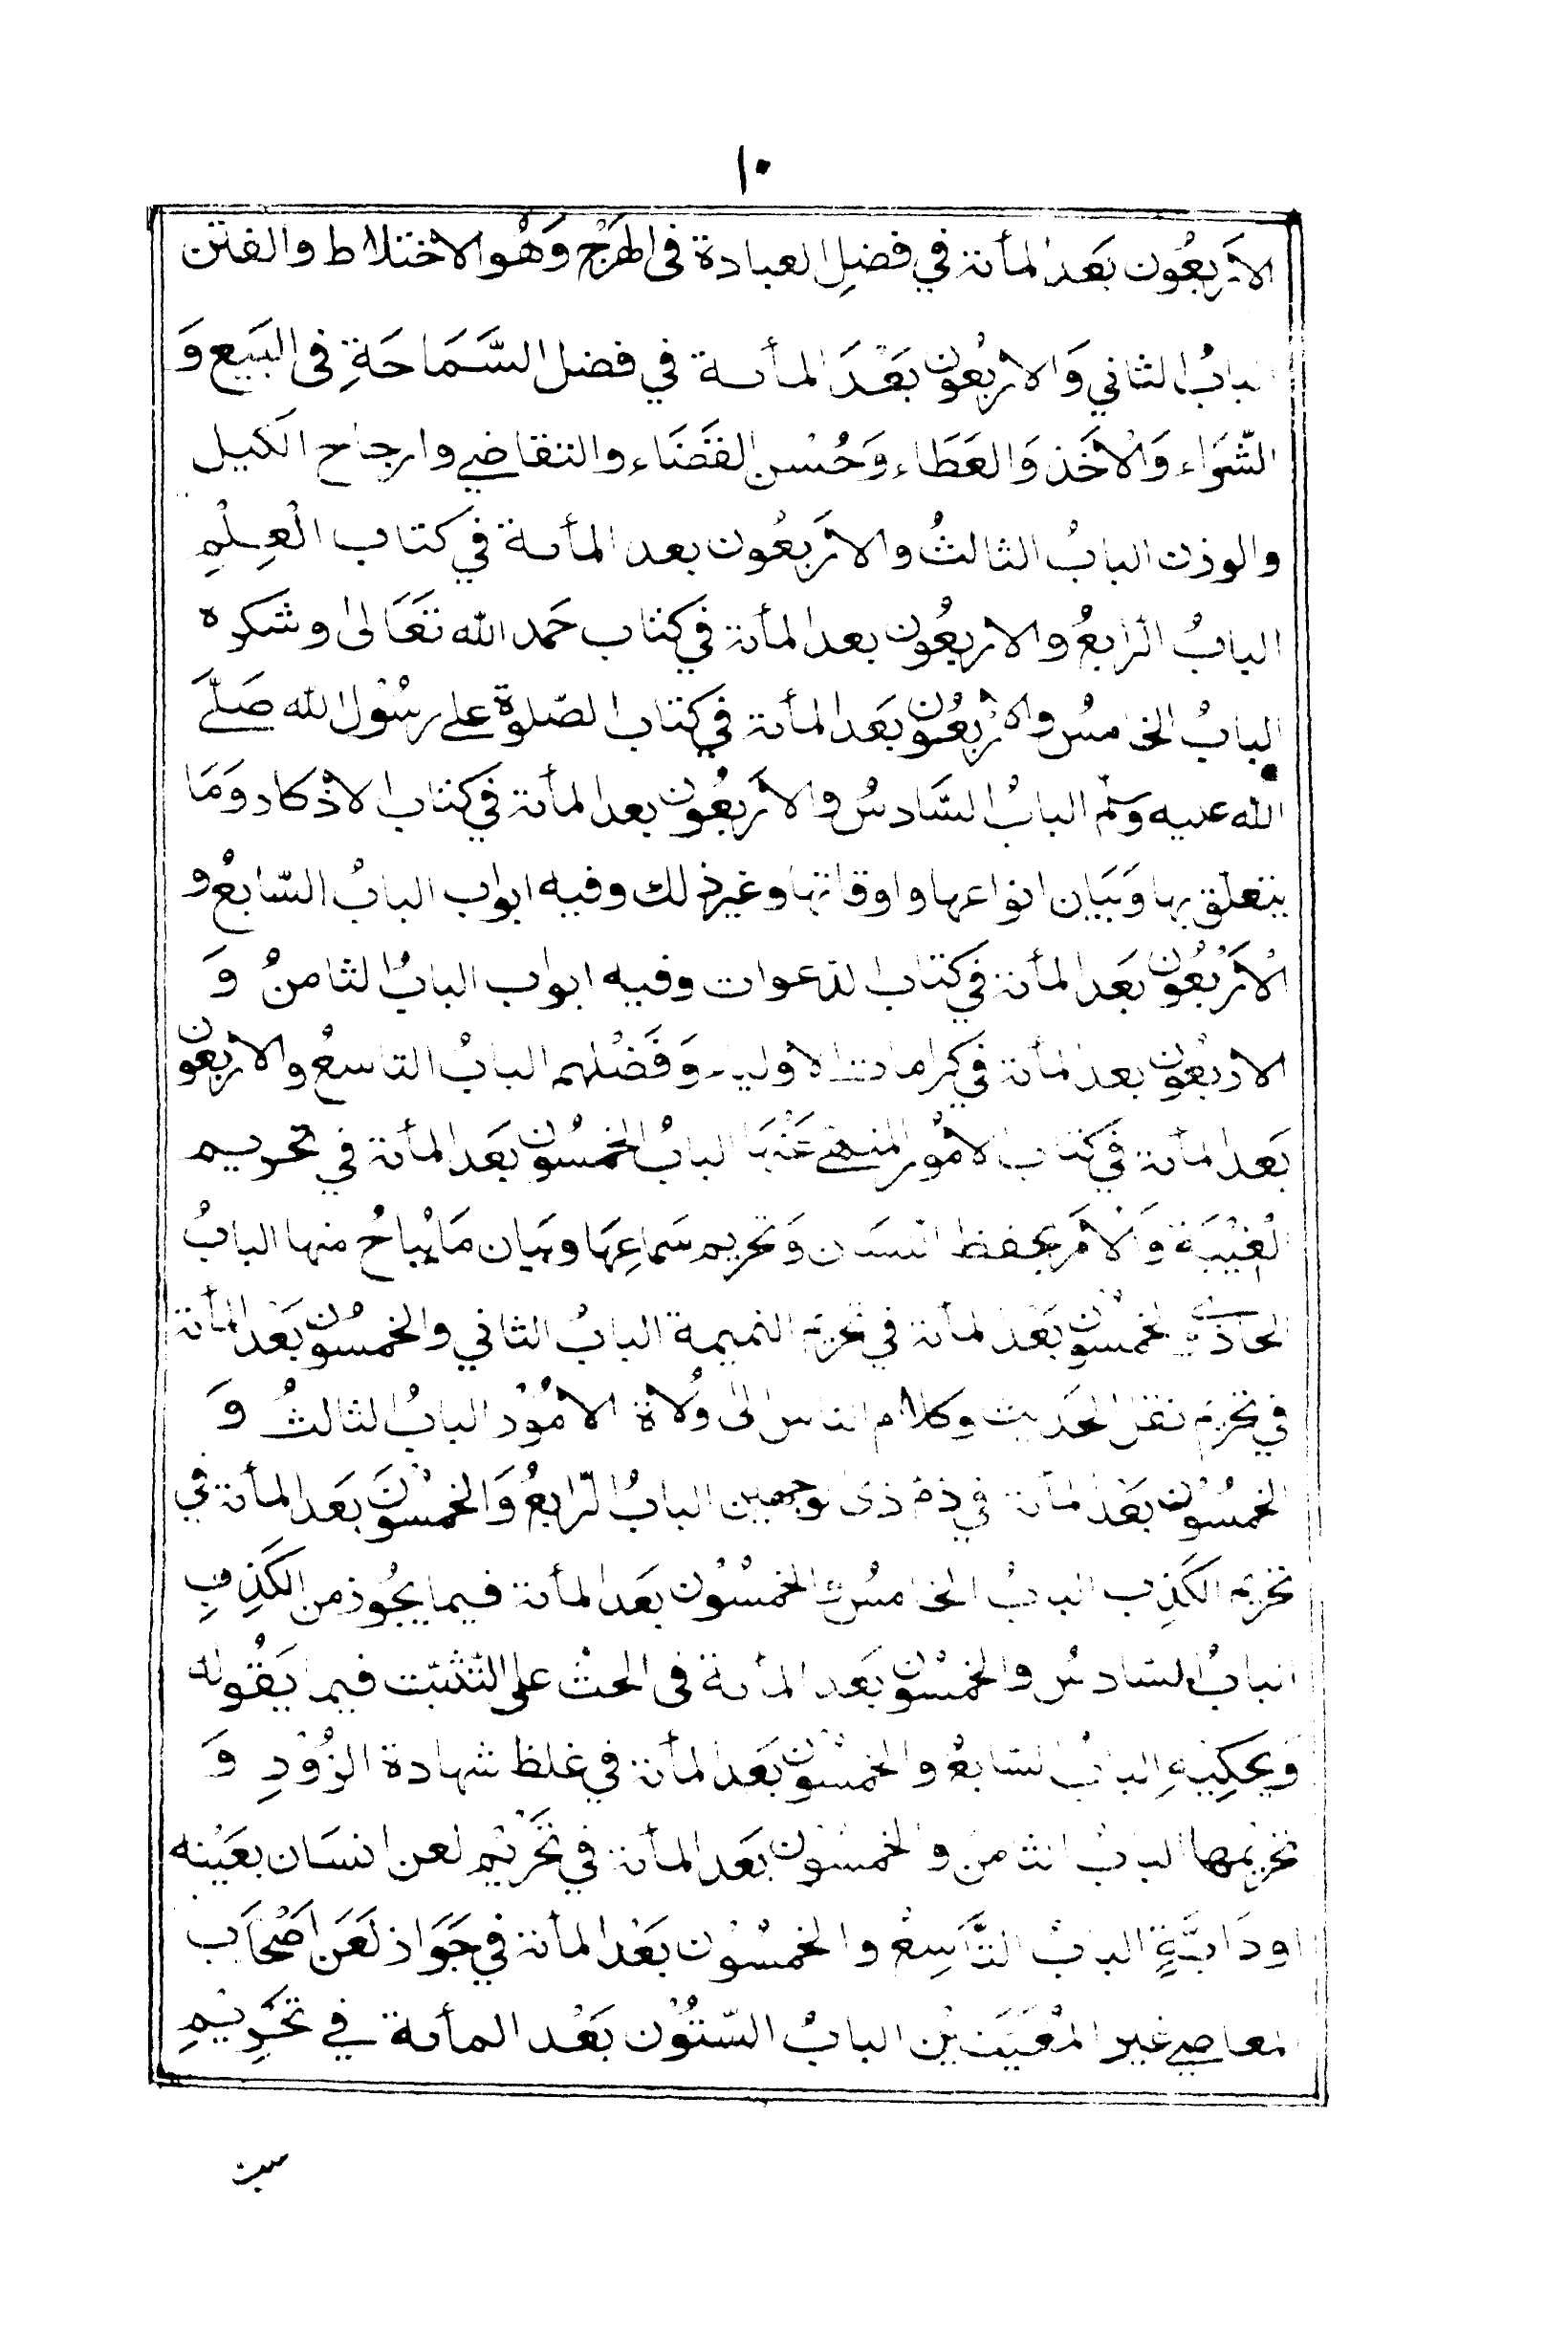 ١٠
الاَربعُون بَعدالمأئة في فضلِ العبادة فى الهَرَجْ وَهْو الاختلاط والفتن
البابُ الثاني وَالاربعُون بَعْدَ المأئة في فضل السَّمَاحَةِ فى البَيع وَ
الشّرَاء وَالْاَخَذ وَالعَطَاء وَحُسْن القَضَاء والتقاضے وارجاح الكَيل
والوزن البابُ الثالثُ والاَربعُون بعد المأئة في كتاب الْعِلْمِ
البابُ الرابعُ والاربعُون بعدالمأئة في كتاب حَمد الله تَعَالىٰ وشكره
البابُ الخامسُ والاَرْبعُون بَعدالمأئة في كتاب الصّلوة على رسُوْل الله صَلّےَ
الله عليه وَسلّم البابُ السَّادسُ والاَربعُون بعدالمأئة في كتاب الاذكار وَمَا
يتعلّق بها وَبَيَان انواعها واوقاتها وغيرذلك وفيه ابواب البابُ السّابعُ و
الْاَرْبُعُون بَعدالمأئة في كتاب الدعوات وفيه ابواب البابُ الثامنُ وَ
الاربْعُون بعدالمأئة في كرامات الاولياء وَفَضْلهم البابُ التاسعُ والاربعون
بَعدالمأئة في كتاب الامُور المنهے عَنْهَا البابُ الخمسُون بَعدالمأئة في تحريم
الغِيْبَة وَالْاَمَر بحفظ اللسَان وَتحريم سَماعِهَا وبيان مَا يُباحُ منها البابُ
الحادے والخمسُون بَعْدالمأئة في تحريم النميمة البابُ الثاني والخمسُون بَعْدالمأئة
في تحريم نقل الحَديث وكلام الناس الىٰ وُلاة الامُوْر البابُ الثالثُ وَ
الخمسُوْن بَعْدالمأئة في ذم ذى الوجهين البابُ الرّابعُ وَالخمسُوْنَ بَعدالمأئة في
تحريم الكَذِب البابُ الخامسُ والخمسُوْن بَعدالمأئة فيما يجُوز من الكَذِبِ
البابُ السّادسُ والخمسُون بَعد المأئة فى الحثْ على التّثبّت فيما يَقُوله
وَيحكِيْهِ البابُ السّابعُ والخمسُوْن بَعدالمأئة في غلظ شهادة الزُوْرِ وَ
تحريْمها البابُ الثامنُ والخمسُون بَعدالمأئة في تَحْرَيْم لعن انسَان بعَيْنه
اودَابَّةٍ البابُ التَّاسِعُ والخمسُوْن بَعْدالمأئة في جَوَاز لَعَن اَصْحَاب
المعاصے غير المُعَيَنيْن البابُ السّتُوْن بَعْد المأئة في تَحْرِيْمِ
سب